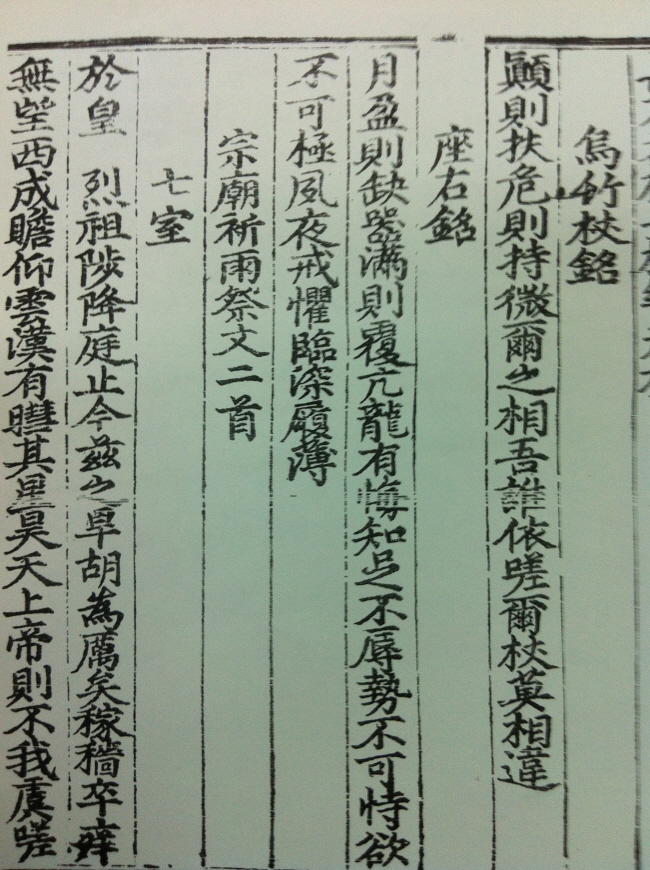 烏竹杖銘
顚則扶危則持微爾之相吾誰依嗟爾杖莫相違
座右銘
月盈則缺噐滿則覆亢龍有悔知足不辱勢不可恃欲
不可極夙夜戒懼臨深履薄
宗廟祈雨祭文二首
七室
於皇 烈祖陟降庭止今玆之旱胡為厲矣稼穡卒痒
無望西成瞻仰雲漢有嘒其星昊天上帝則不我虞嗟